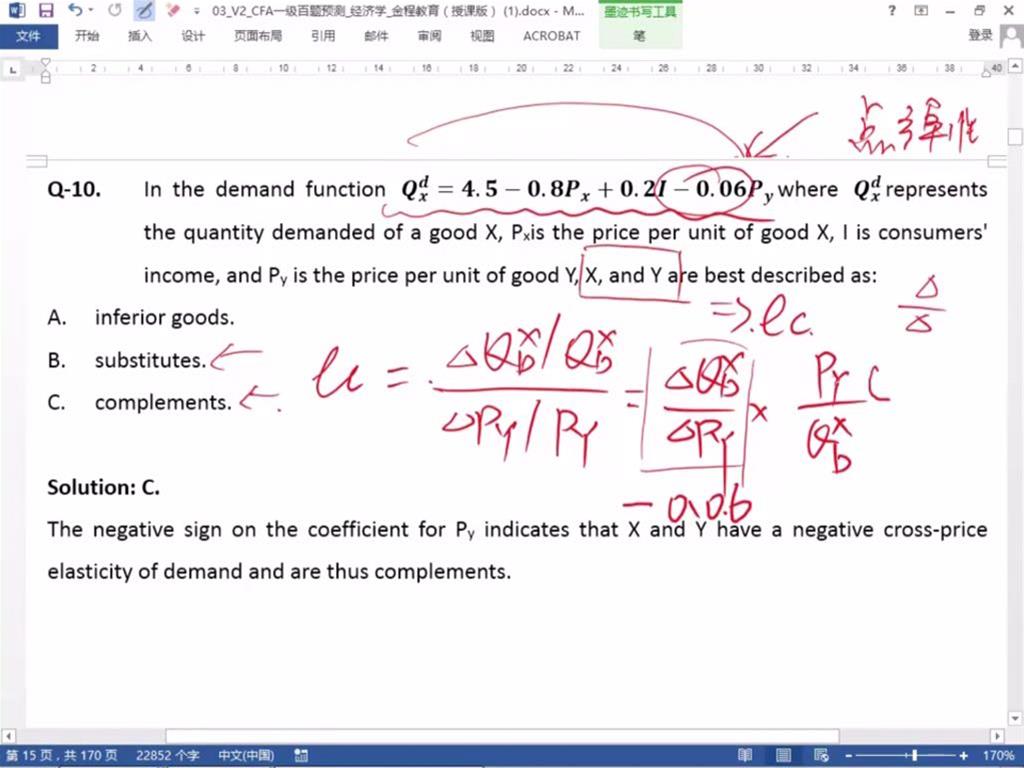 03_V2_CFA一级百题预测_经济学_金程教育（授课版）(1).docx - M...
墨迹书写工具
文件 开始 插入 设计 页面布局 引用 邮件 审阅 视图 ACROBAT 笔 登录
2 4 6 8 10 12 14 16 18 20 22 24 26 28 30 32 34 36 38 40
点弹性
Q-10. In the demand function Q_x^d = 4.5 − 0.8P_x + 0.2I − 0.06P_y where Q_x^d represents
the quantity demanded of a good X, Pₓis the price per unit of good X, I is consumers'
income, and P_y is the price per unit of good Y, X, and Y are best described as:
A. inferior goods.
B. substitutes.
C. complements.
Solution: C.
−0.06
The negative sign on the coefficient for P_y indicates that X and Y have a negative cross-price
elasticity of demand and are thus complements.
第 15 页，共 170 页 22852 个字 中文(中国) 170%